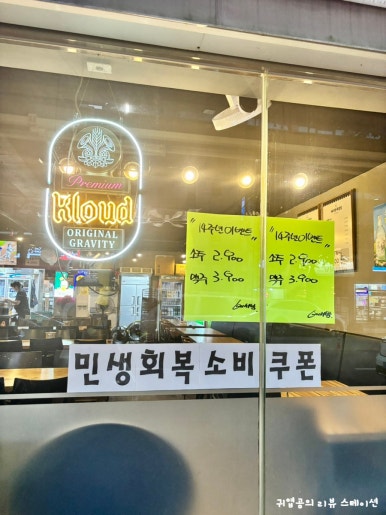 Premium
Kloud
ORIGINAL
GRAVITY
"14주년이벤트"
소주 2.900
맥주 3.900
"14주년이벤트"
소주 2.900
맥주 3.900
민생회복소비쿠폰
귀염곰의 리뷰 스테이션